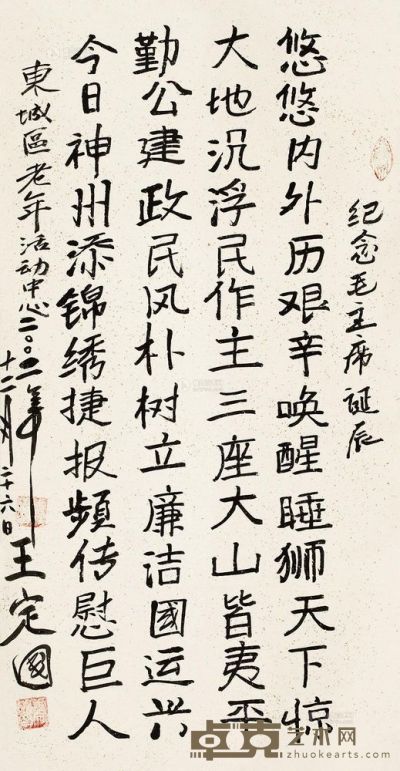 纪念毛主席诞辰
悠悠内外历艰辛唤醒睡狮天下惊
大地沉浮民作主三座大山皆夷平
勤公建政民风朴树立廉洁國运兴
今日神州添锦绣捷报频传慰巨人
東城區老年活动中心二〇〇二年
十二月二十六日
王定國
卓克艺术网
zhuokearts.com